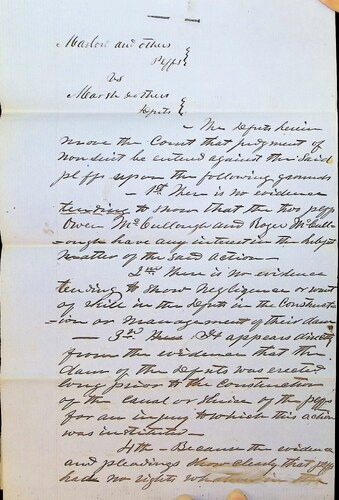 Marlow and others
Plffs
vs
Marsh & others
Defts
— The Defts herein
move the Court that judgment of
non suit be entered against the said
plffs upon the following grounds
— 1st There is no evidence
tending to show that the two plffs
Owen McCullough and Roger McCull-
-ough have any interest in the subject
matter of the said action —
2nd There is no evidence
tending to show negligence or want
of skill in the Defts in the construct-
-ion or management of their dam
— 3rd It appears directly
from the evidence that the
dam of the Defts was erected
long prior to the construction
of the canal or sluice of the plffs
for an injury to which this action
was instituted —
4th — Because the evidence
and pleadings show clearly that plffs
have no rights whatever in the